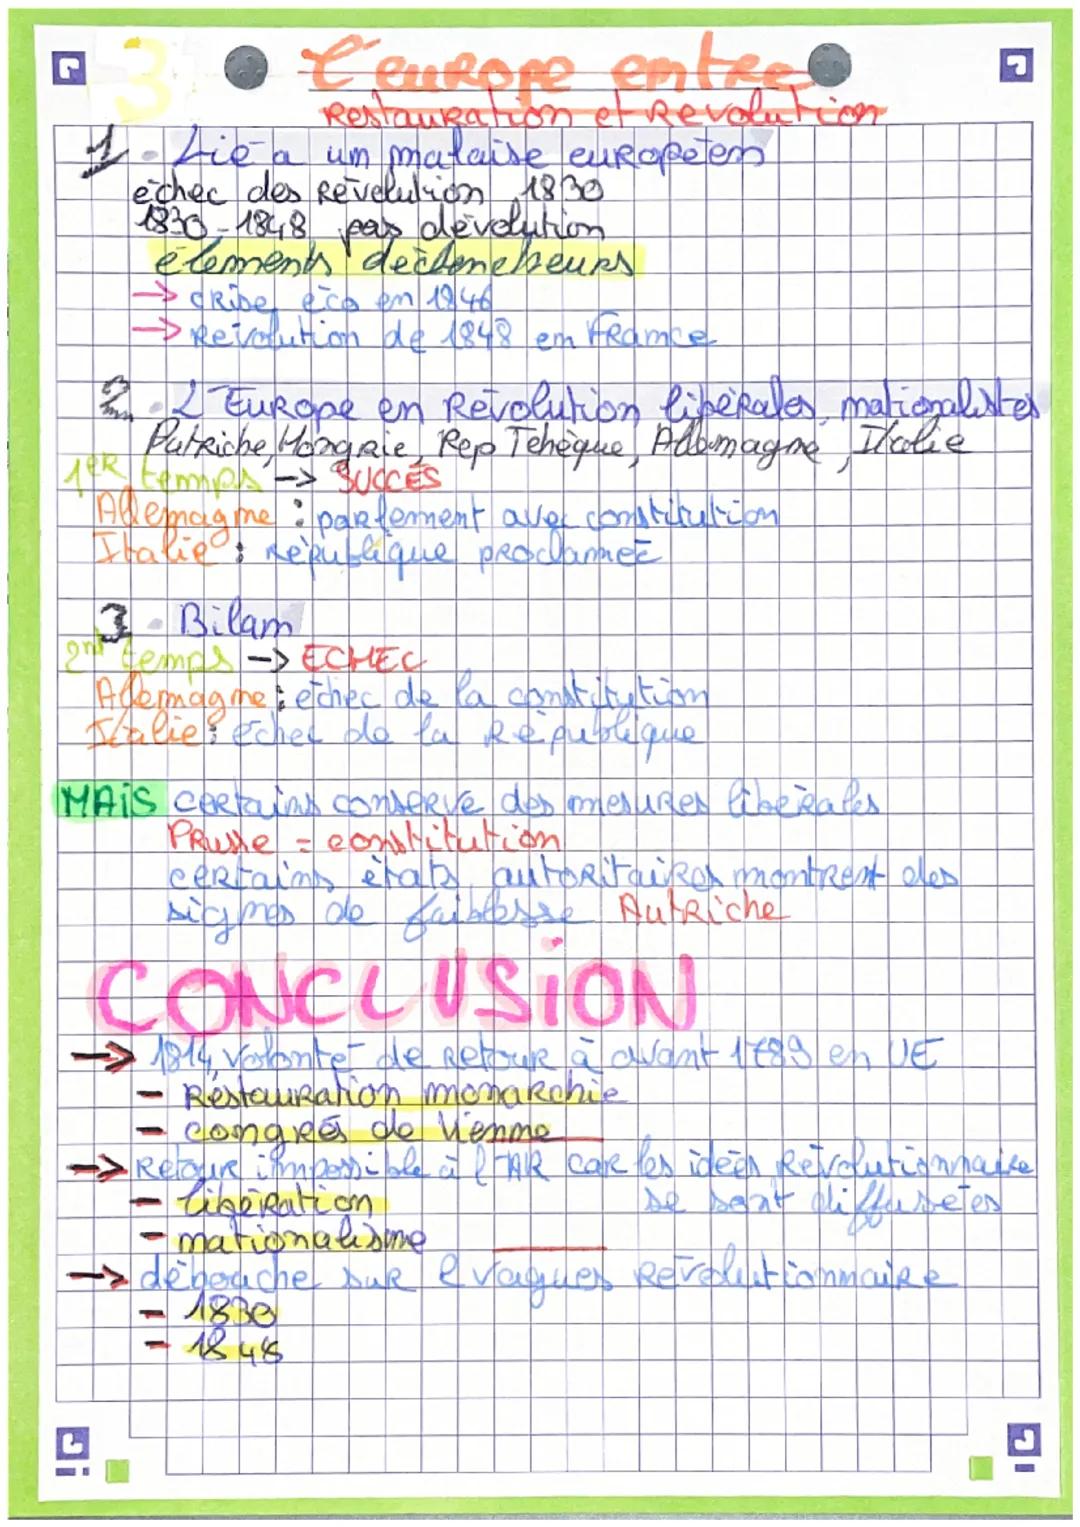 3 L'europe entre
Restauration et Révolution
1. Lié a un malaise européen
échec des Révolution 1830
1830-1848 pas dévolution
élements déclencheurs
→ crise éco en 1846
→ Révolution de 1848 en France
2. L'Europe en Révolution libérales, nationalistes
Autriche, Hongrie, Rep Tchèque, Allemagne, Italie
1er temps → SUCCÉS
Allemagne : parlement avec constitution
Italie : république proclamée
3. Bilan
2nd temps → ECHEC
Allemagne : échec de la constitution
Italie : échec de la République
MAIS certains conserve des mesures libérales
Prusse = constitution
certains états autoritaires montrent des
signes de faiblesse Autriche
CONCLUSION
→ 1814, volonté de retour à avant 1789 en UE
- Restauration monarchie
- congrés de Vienne
→ Retour impossible à l'AR car les idées Révolutionnaire
se sont diffusées
- libération
- nationalisme
→ débouche sur 2 vagues Révolutionnaire
- 1830
- 1848